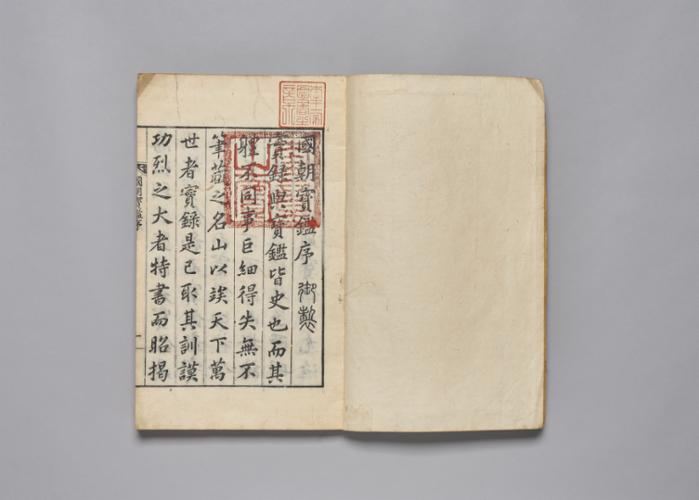 國朝寶鑑序 御製
實錄與寶鑑皆史也而其
體不同事巨細得失無不
筆蓝之名山以竢天下萬
世者實錄是已取其訓謨
功烈之大者特書而昭揭
國朝寶鑑序